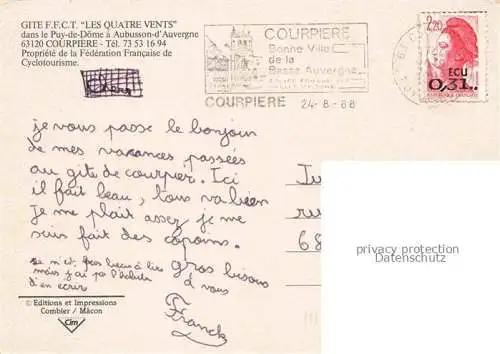 GITE F.F.C.T. "LES QUATRE VENTS"
dans le Puy-de-Dôme à Aubusson-d'Auvergne
63120 COURPIERE - Tél. 73 53 16 94
Propriété de la Fédération Française de
Cyclotourisme.
COURPIERE
Bonne Ville
de la
Basse Auvergne
COURPIERE 24-8-88
2,20
ECU
0,31
je vous passe le bonjour
de mes vacances passées
au gite de courpier. Ici
il fait beau, tous va bien
Je me plait assez, je me
suis fait des copains.
gros bisous
à vous
mais j'ai pas l'habitude
d'en ecrire
Franck
Ju
ru
68
privacy protection
Datenschutz
© Editions et Impressions
Combier / Mâcon
Cim